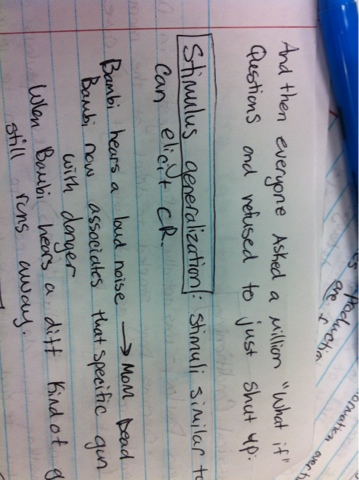 And then everyone Asked a million "What if"
Questions and refused to just shut up.
Stimulus generalization: Stimuli similar to
Can elicit CR.
Bambi hears a loud noise → Mom Dead
Bambi now associates that specific gun
with danger
When Bambi hears a diff kind of g
still runs away.